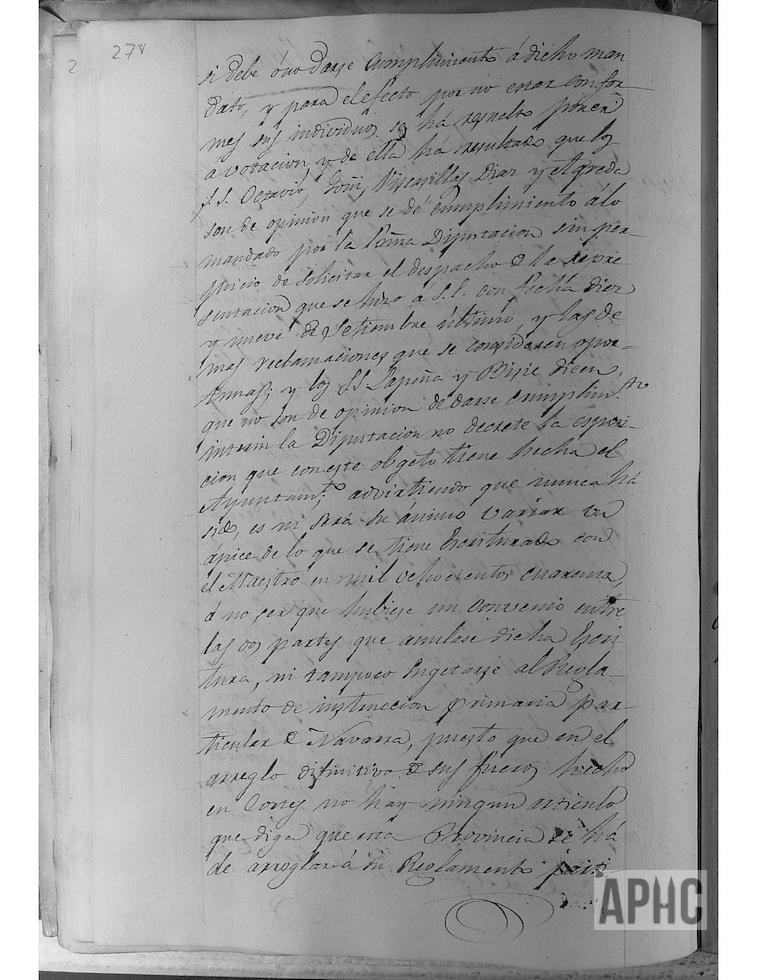 2 27v
si debe ó no darse cumplimiento á dicho man
dato, y para el efecto por no estar confor-
mes sus individuos se há resuelto poner
a votacion y de ella há resultado que los
S.S. Octavio, Goñi, Viscasillas Diaz y Agreda
son de opinion que se dé cumplimiento á lo
mandado por la Exma Diputacion sin per-
juicio de solicitar el despacho de la repre
sentacion que se hizo á S.E. con fecha diez
y nueve de Setiembre último, y las de
mas reclamaciones que se consideren opor-
tunas; y los SS Lapeña y Bisie dicen,
que no son de opinion de darse cumplim.to
interin la Diputacion no decrete la esposi-
cion que con este objeto tiene hecha el
Ayuntam.to advirtiendo que nunca há
sido, es ni será su ánimo variar un
ápice de lo que se tiene Escriturado con
el Maestro en mil ochocientos cuarenta,
á no ser que hubiese un convenio entre
las dos partes que anulase dicha Escri
tura, ni tampoco sugetarse al Regla-
mento de instruccion primaria par-
ticular de Navarra, puesto que en el
arreglo difinitivo de sus fueros hecho
en Cortes no hay ningun articulo
que diga que esta Provincia se há
de arreglar á su Reglamento parti
APHC